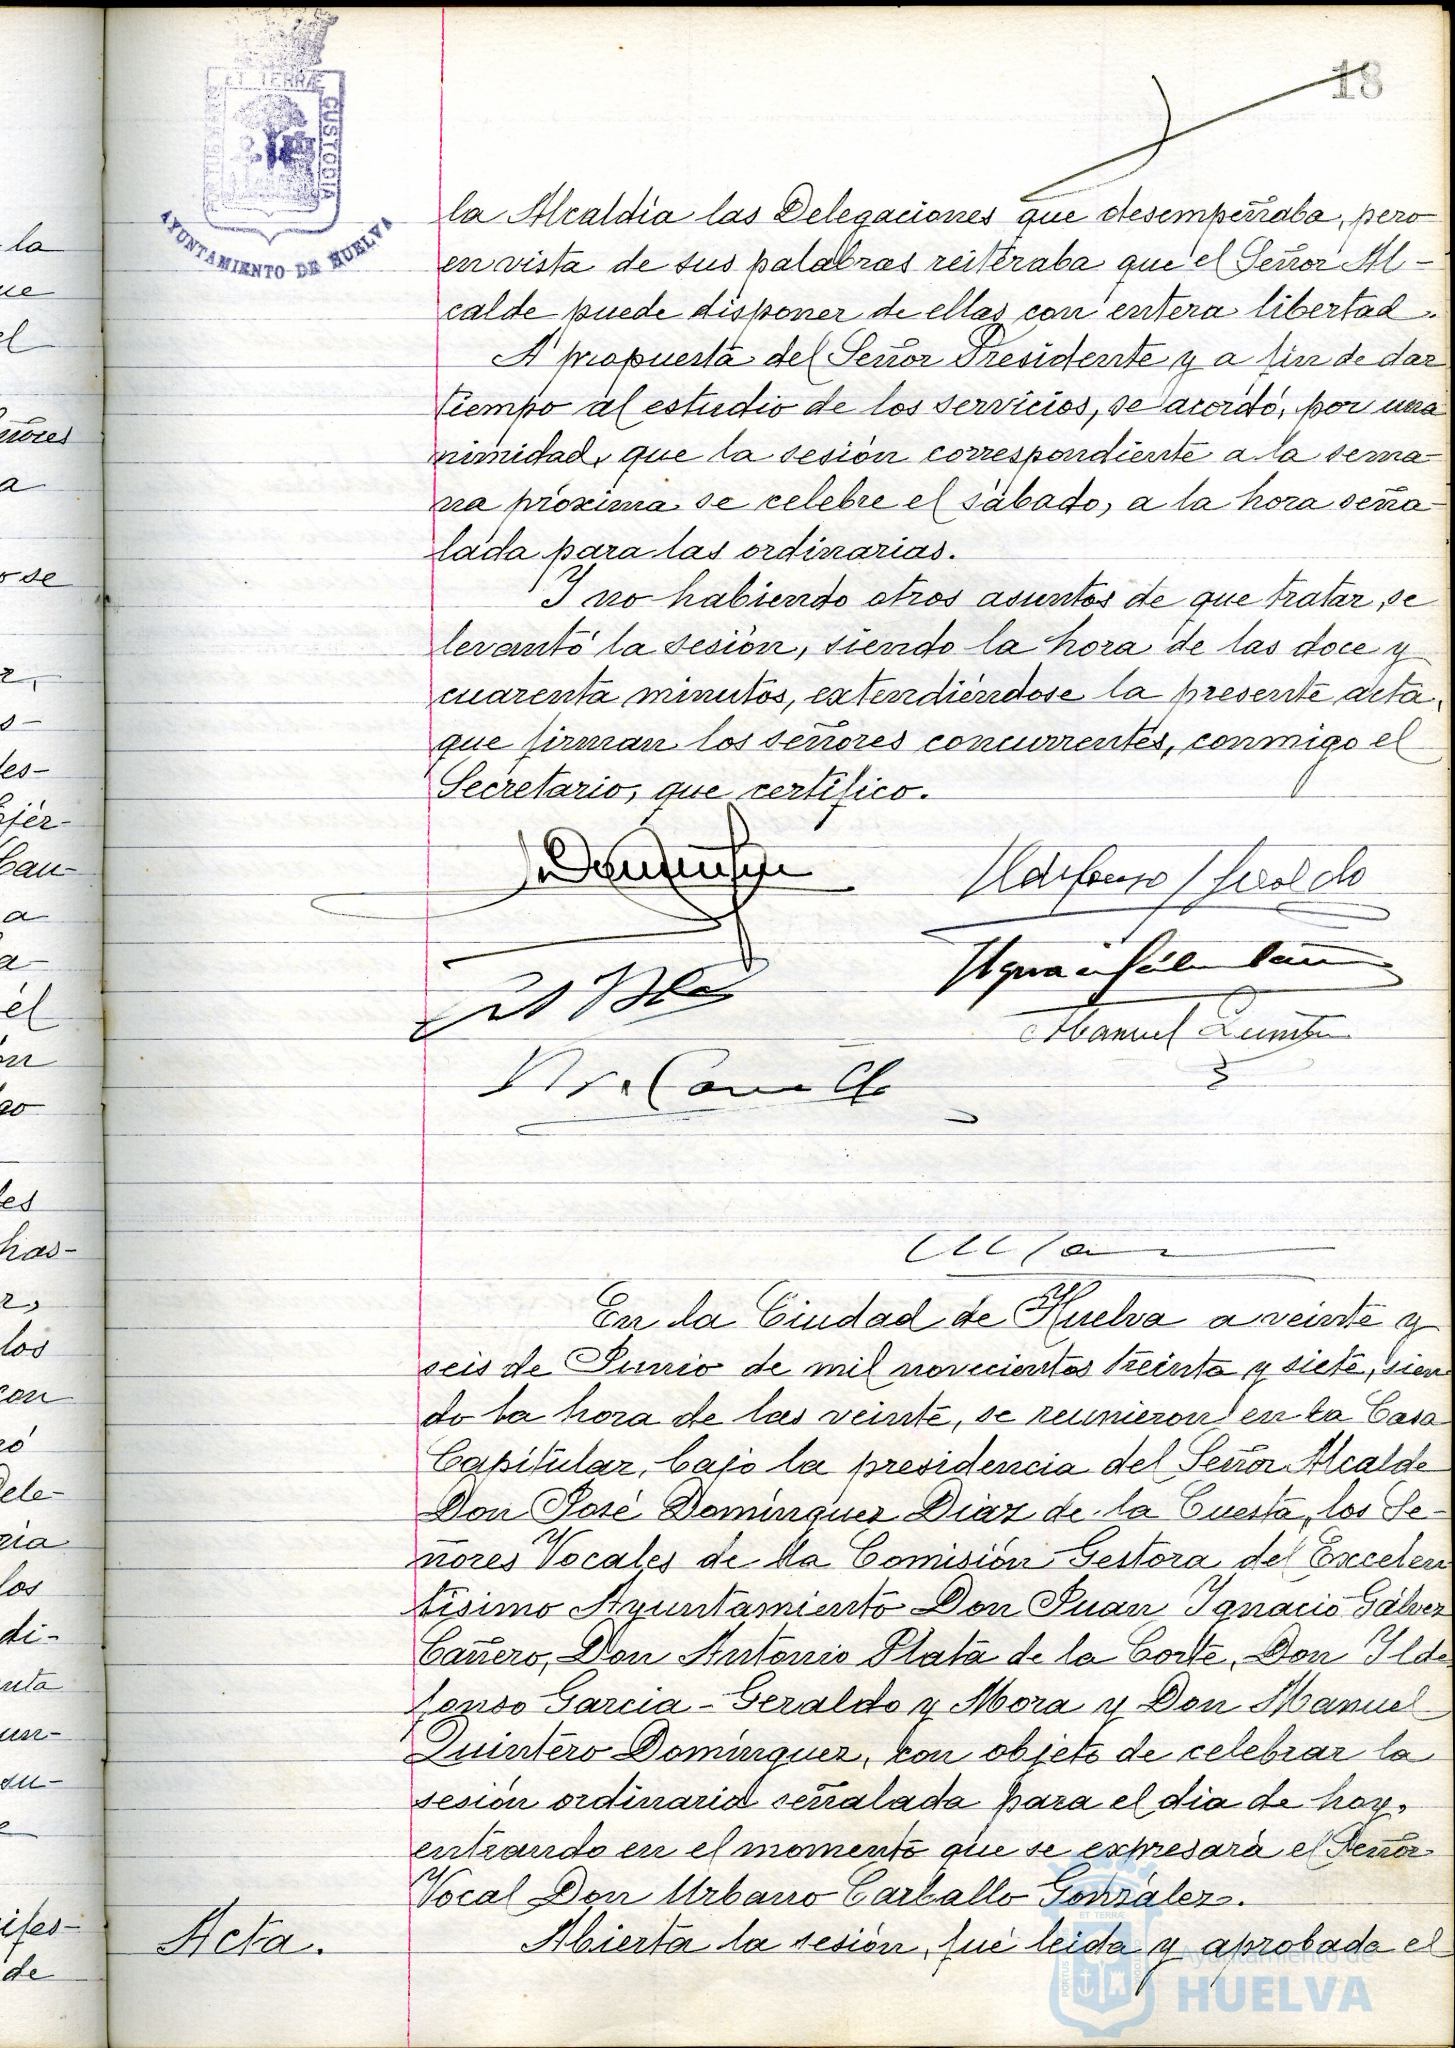 18
ET TERRÆ
CUSTODIA
AYUNTAMIENTO DE HUELVA
la Alcaldía las Delegaciones que desempeñaba, pero
en vista de sus palabras reiteraba que el Señor Al-
calde puede disponer de ellas con entera libertad.
A propuesta del Señor Presidente y a fin de dar
tiempo al estudio de los servicios, se acordó, por una
nimidad, que la sesión correspondiente a la sema-
na próxima se celebre el sábado, a la hora seña-
lada para las ordinarias.
Y no habiendo otros asuntos de que tratar, se
levantó la sesión, siendo la hora de las doce y
cuarenta minutos, extendiéndose la presente acta,
que firman los señores concurrentes, conmigo el
Secretario, que certifico.
Ildefonso Geraldo
Manuel
En la Ciudad de Huelva a veinte y
seis de Junio de mil novecientos treinta y siete, sien
do la hora de las veinte, se reunieron en la Casa
Capitular, bajo la presidencia del Señor Alcalde
Don José Domínguez Díaz de la Cuesta, los Se-
ñores Vocales de la Comisión Gestora del Excelen
tísimo Ayuntamiento Don Juan Ignacio Gálvez
Cañero, Don Antonio Plata de la Corte, Don Ilde
fonso García-Geraldo y Mora y Don Manuel
Quintero Domínguez, con objeto de celebrar la
sesión ordinaria señalada para el día de hoy,
entrando en el momento que se expresará el Señor
Vocal Don Urbano Carballo González.
Acta.
Abierta la sesión, fué leída y aprobada el
Ayuntamiento de
HUELVA
la
ue
el
ñores
a
o se
r,
s-
des-
Ejér-
Cau-
a
a-
él
ón
go
les
has-
r,
los
con
ró
Dele-
ria
los
di-
nta
un-
su-
e
nifes-
de